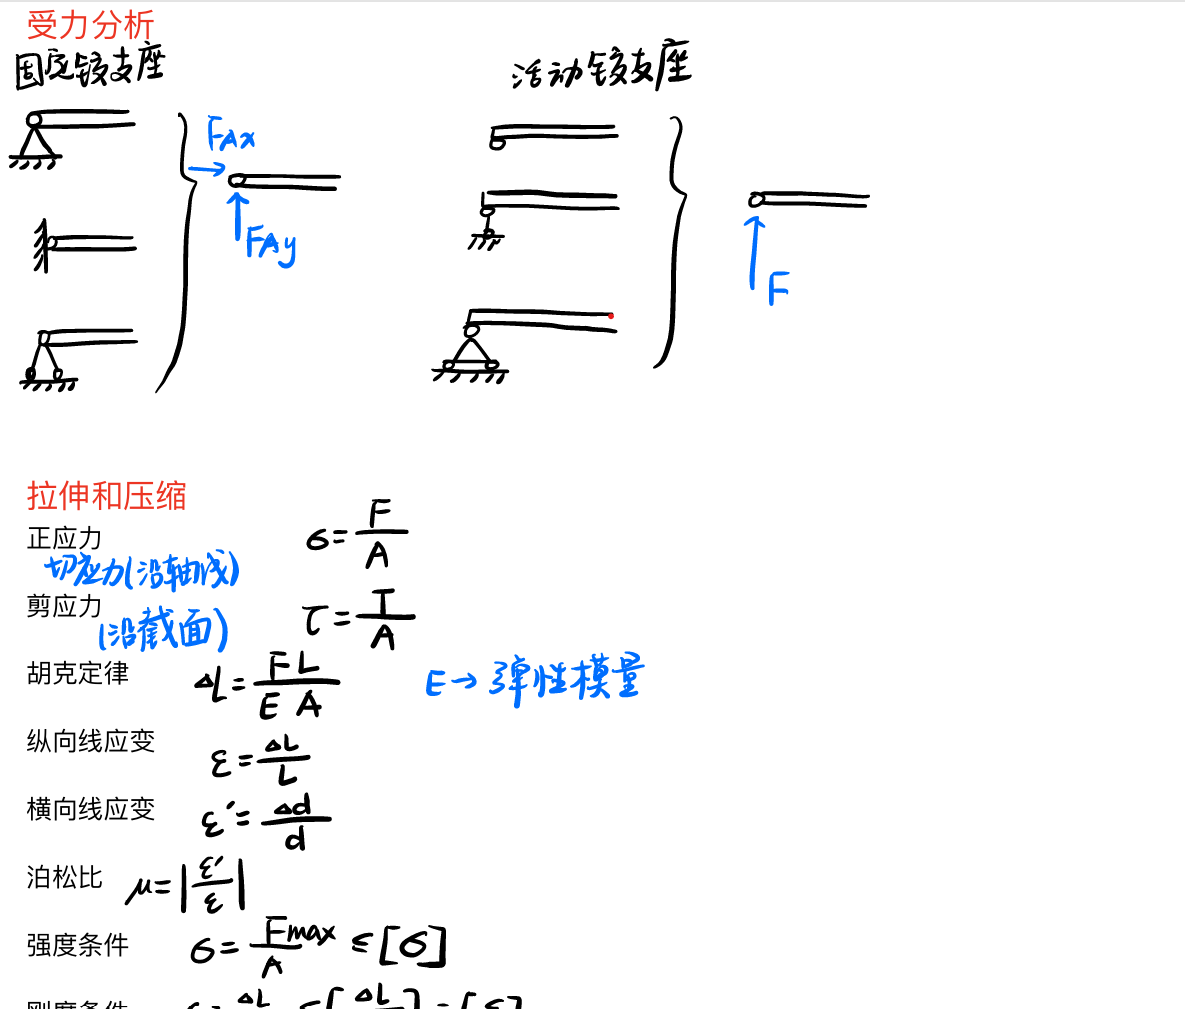 受力分析
固定铰支座
活动铰支座
FAx
FAy
F
拉伸和压缩
正应力
σ=F/A
切应力(沿轴线)
剪应力
τ=T/A
(沿截面)
胡克定律
ΔL=FL/EA
E→弹性模量
纵向线应变
ε=ΔL/L
横向线应变
ε′=Δd/d
泊松比
μ=|ε′/ε|
强度条件
σ=Fmax/A≤[σ]